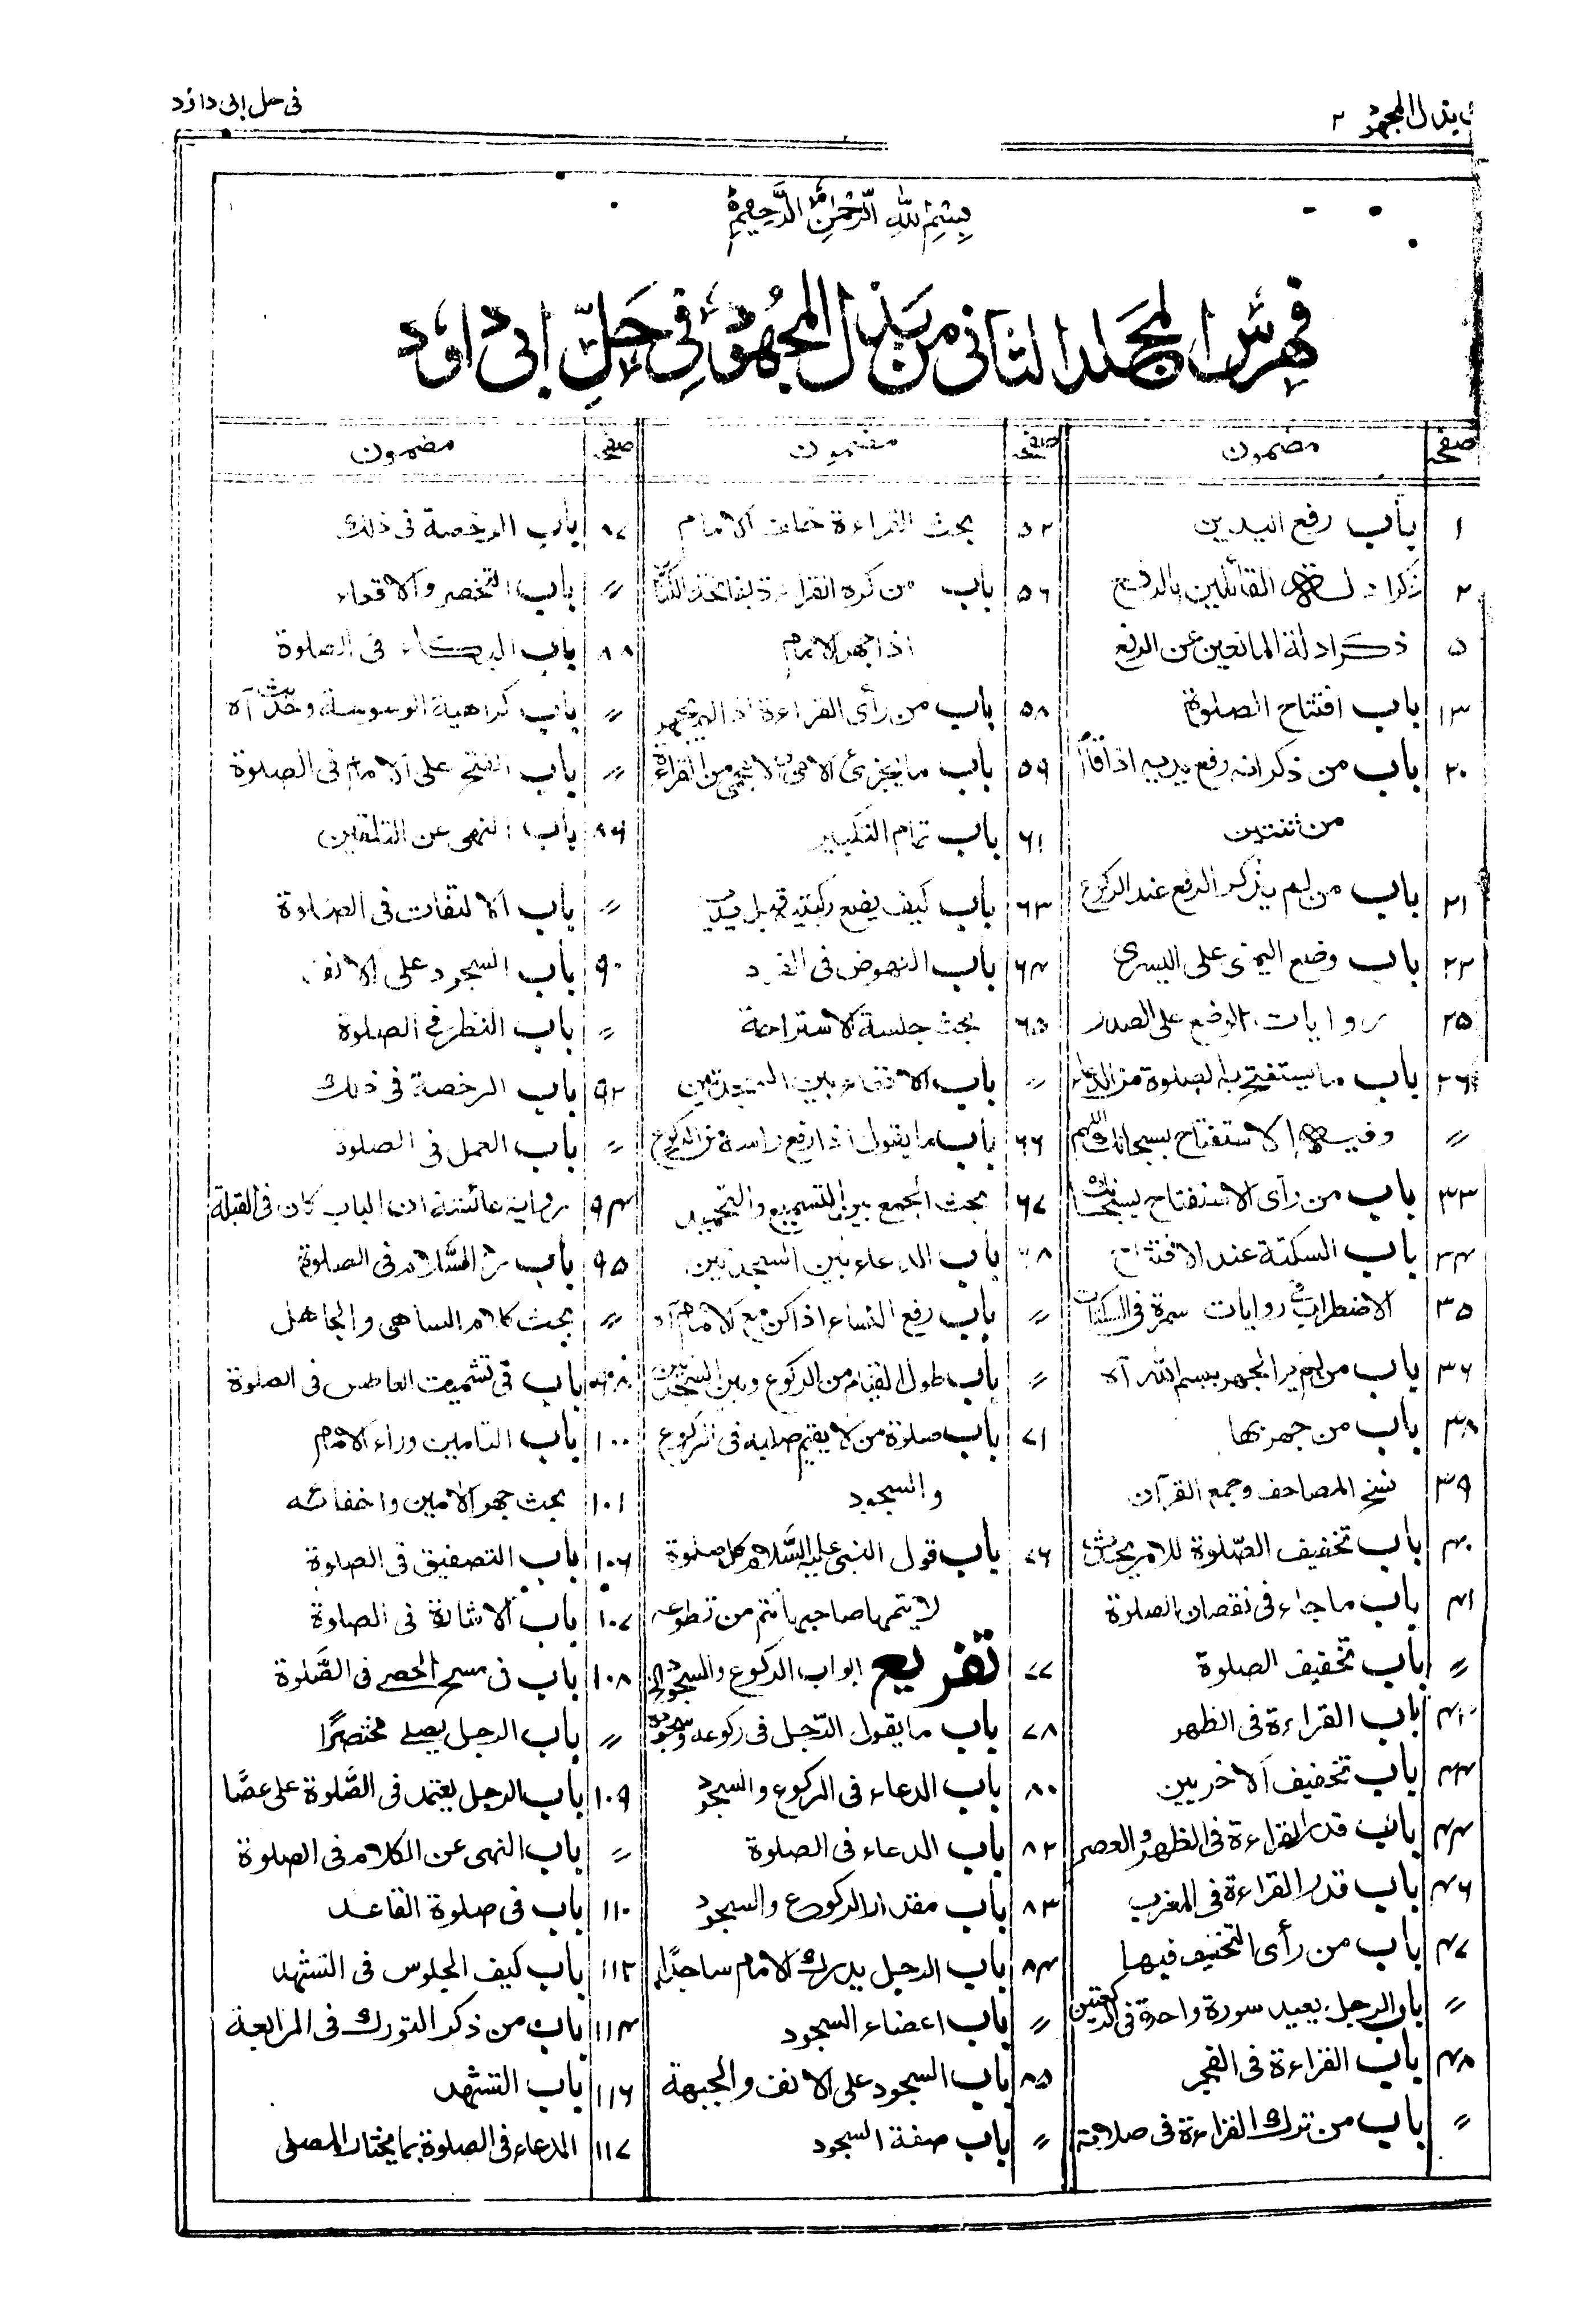 بذل المجهود ۲
فی حل ابی داؤد
بِسْمِ اللّٰهِ الرَّحْمٰنِ الرَّحِيْمِ
فهرس المجلد الثانی من بذل المجهود فی حل ابی داؤد
صفحه مضمون
۱ باب رفع اليدين
۲ ذكر ادلة القائلين بالرفع
۵ ذكر ادلة المانعين عن الرفع
۱۳ باب افتتاح الصلوة
۲۰ باب من ذكر انه رفع يديه اذا قام
من ثنتين
۲۱ باب من لم يذكر الرفع عند الركوع
۲۳ باب وضع اليمنى على اليسرى
۲۵ روايات الوضع على الصدر
۲۶ باب ما يستفتح به الصلوة من الدعاء
〃 وفيه الاستفتاح بسبحانك اللهم
۳۳ باب من رأى الاستفتاح بسبحانك
۳۴ باب السكتة عند الافتتاح
۳۵ الاضطراب فى روايات سمرة فى السكتات
۳۶ باب من لم ير الجهر ببسم الله آه
۳۸ باب من جهر بها
۳۹ نسخ المصاحف وجمع القرآن
۴۰ باب تخفيف الصّلوة للامر يحدث
۴۱ باب ماجاء فى نقصان الصلوة
〃 باب تخفيف الصلوة
باب القراءة فى الظهر
۴۳ باب تخفيف الاخريين
۴۴ باب قدر القراءة فى الظهر والعصر
۴۶ باب قدر القراءة فى المغرب
۴۷ باب من رأى التخفيف فيها
〃 باب الرجل يعيد سورة واحدة فى الركعتين
۴۸ باب القراءة فى الفجر
〃 باب من ترك القراءة فى صلاته
صفحه مضمون
۵۲ بحث القراءة خلف الامام
۵۶ باب من كره القراءة بفاتحة الكتاب
اذا جهر الامام
۵۸ باب من رأى القراءة اذا لم يجهر
۵۹ باب ما يجزئ الامى والاعجمى من القراءة
۶۱ باب تمام التكبير
۶۳ باب كيف يضع ركبتيه قبل يديه
۶۴ باب النهوض فى الفرد
۶۵ بحث جلسة الاستراحة
〃 باب الاقعاء بين السجدتين
۶۶ باب ما يقول اذا رفع راسه من الركوع
۶۷ بحث الجمع بين التسميع والتحميد
۶۸ باب الدعاء بين السجدتين
〃 باب رفع النساء اذا كن مع الامام آه
〃 باب طول القيام من الركوع وبين السجدتين
۷۱ باب صلوة من لا يقيم صلبه فى الركوع
والسجود
۷۶ باب قول النبى عليه السَّلام كل صلوة
لا يتمها صاحبها تتم من تطوعه
۷۷ تفريع ابواب الركوع والسجود الخ
۷۸ باب ما يقول الرّجل فى ركوعه وسجوده
۸۰ باب الدعاء فى الركوع والسجود
۸۲ باب الدعاء فى الصلوة
۸۳ باب مقدار الركوع والسجود
۸۴ باب الرجل يدرك الامام ساجدًا
〃 باب اعضاء السجود
۸۵ باب السجود على الانف والجبهة
〃 باب صفة السجود
صفحه مضمون
۸۷ باب الرخصة فى ذلك
〃 باب التخصر والاقعاء
۸۸ باب البكاء فى الصلوة
〃 باب كراهية الوسوسة وحديث آه
〃 باب الفتح على الامام فى الصلوة
۸۹ باب النهى عن التلقين
〃 باب الالتفات فى الصلوة
۹۰ باب السجود على الانف
〃 باب النظر فى الصلوة
۹۲ باب الرخصة فى ذلك
〃 باب العمل فى الصلوة
۹۴ رواية عائشة ان الباب كان فى القبلة
۹۵ باب رد السَّلام فى الصلوة
〃 بحث كلام الساهى والجاهل
باب فى تشميت العاطس فى الصلوة
۱۰۰ باب التامين وراء الامام
۱۰۱ بحث جهر الآمين واخفائه
۱۰۶ باب التصفيق فى الصلوة
۱۰۷ باب الاشارة فى الصلوة
۱۰۸ باب فى مسح الحصى فى الصَّلوة
〃 باب الرجل يصلے مختصرًا
۱۰۹ باب الرجل يعتمد فى الصَّلوة على عصًا
〃 باب النهى عن الكلام فى الصلوة
۱۱۰ باب فى صلوة القاعد
۱۱۲ باب كيف الجلوس فى التشهد
۱۱۴ باب من ذكر التورك فى الرابعة
۱۱۶ باب التشهد
۱۱۷ الدعاء فى الصلوة بما يختار المصلى